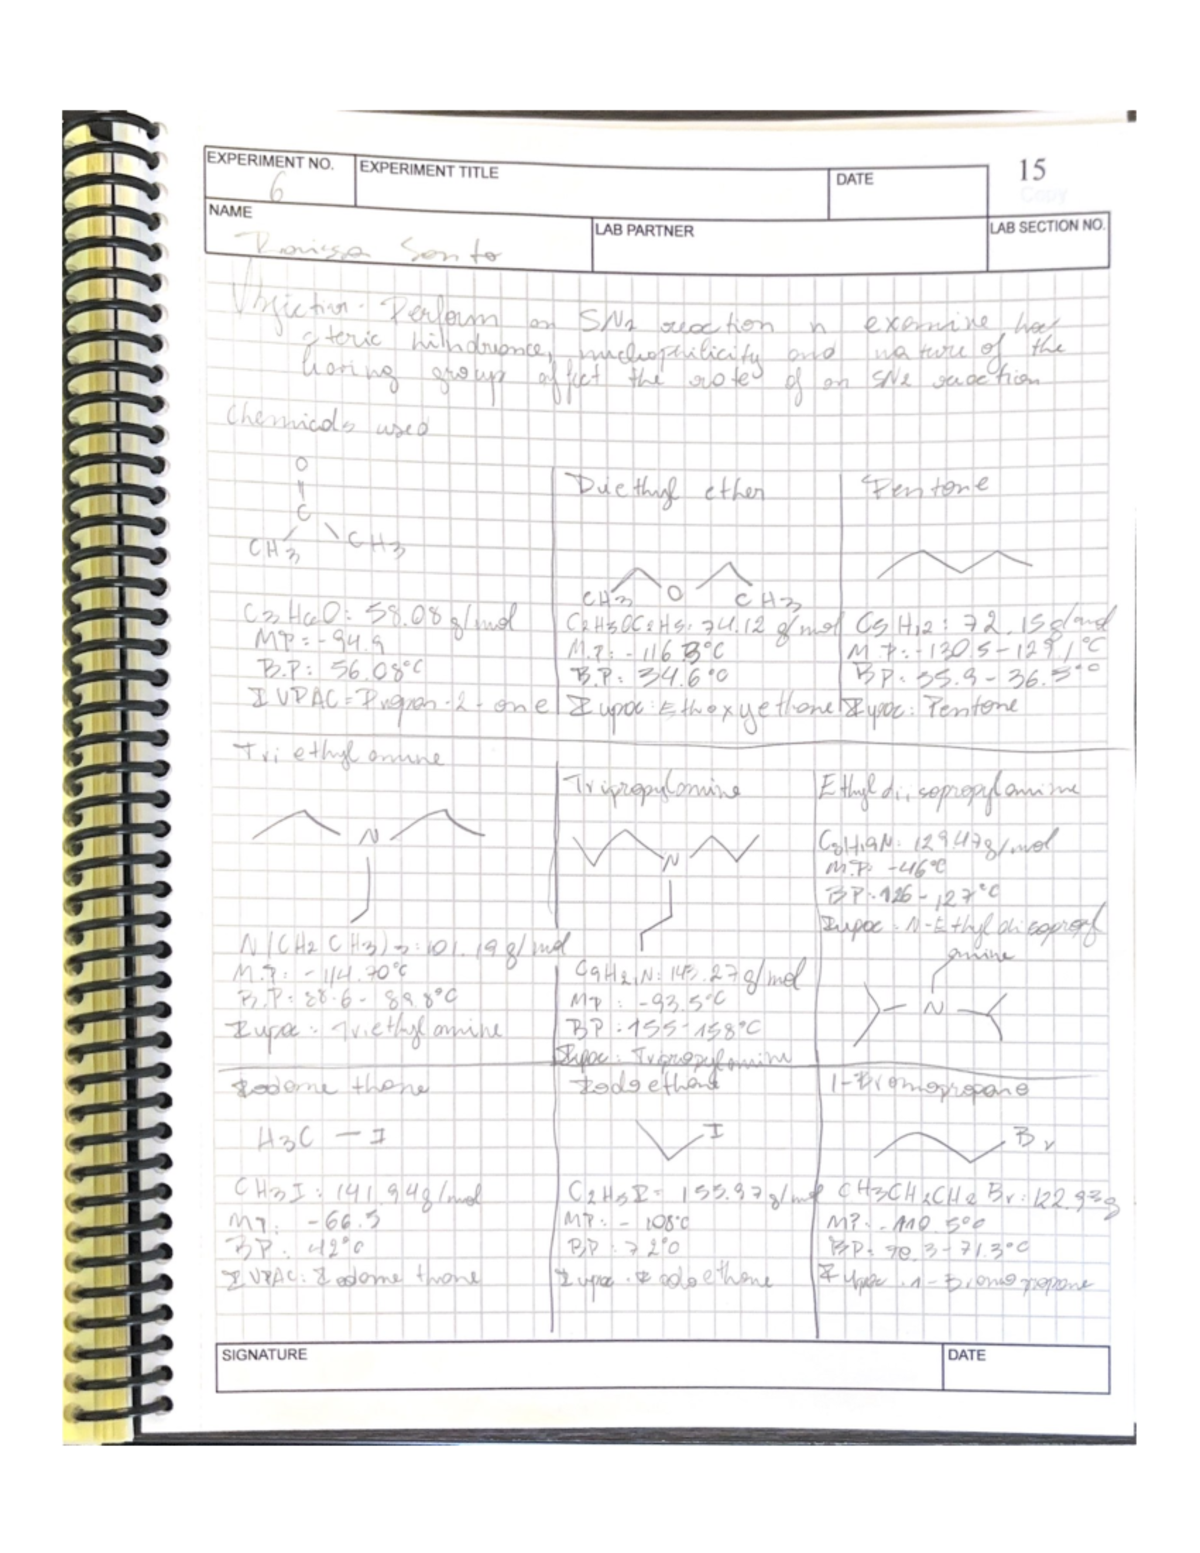 EXPERIMENT NO.
6
EXPERIMENT TITLE
DATE
15
Copy
NAME
LAB PARTNER
LAB SECTION NO.
Perform an SN2 reaction n examine how
steric hindrance, nucleophilicity and nature of the
group affect the rates of an SN2 reaction
Chemicals used
O
C
CH3 CH3
C3H6O: 58.08 g/mol
MP: -94.9
B.P: 56.08°C
IUPAC = Propan-2-one
Diethyl ether
CH3 O CH3
C2H5OC2H5: 74.12 g/mol
M.P: -116.3°C
B.P: 34.6°C
Iupac: Ethoxyethane
Pentane
C5H12: 72.15 g/mol
M.P: -130.5-129.1°C
BP: 35.9-36.5°C
Iupac: Pentane
Triethylamine
N
N(CH2CH3)3: 101.19 g/mol
M.P: -114.70°C
B.P: 88.6-89.8°C
Iupac: Triethylamine
Tripropylamine
N
C9H21N: 143.27 g/mol
MP: -93.5°C
BP: 155-158°C
Iupac: Tripropylamine
Ethyldiisopropylamine
C8H19N: 129.47 g/mol
M.P: -46°C
BP: 126-127°C
Iupac: N-Ethyldiisoprop
amine
N
Iodomethane
H3C - I
CH3I: 141.94 g/mol
MP: -66.5
BP: 42°C
IUPAC: Iodomethane
Iodoethane
I
C2H5I = 155.97 g/mol
MP: -108°C
BP: 72°C
Iupac: Iodoethane
1-Bromopropane
Br
CH3CH2CH2Br: 122.93g
MP: -110.5°C
BP: 70.3-71.3°C
Iupac: 1-Bromopropane
SIGNATURE
DATE